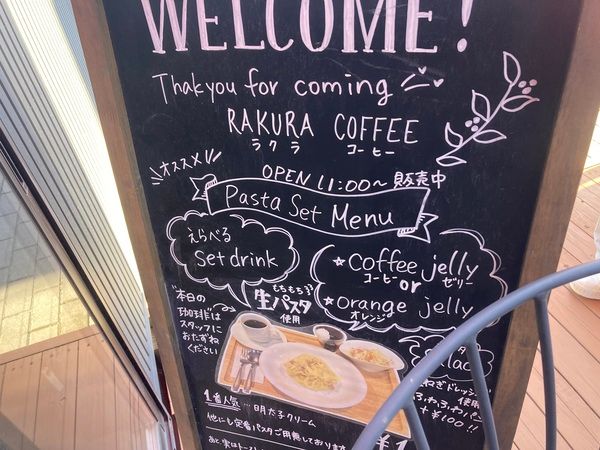 WELCOME!
Thakyou for coming
RAKURA COFFEE
ラクラ コーヒー
オススメ!!
OPEN 11:00~ 販売中
Pasta Set Menu
えらべる
Set drink
☆ coffee jelly
コーヒー ゼリー
or
☆ orange jelly
オレンジ
もちもち
生パスタ
使用
本日の
珈琲は
スタッフに
おたずね
ください
ねぎドレッシ
使用
+¥100!!
1番人気... 明太子クリーム
他にも定番パスタご用意しております